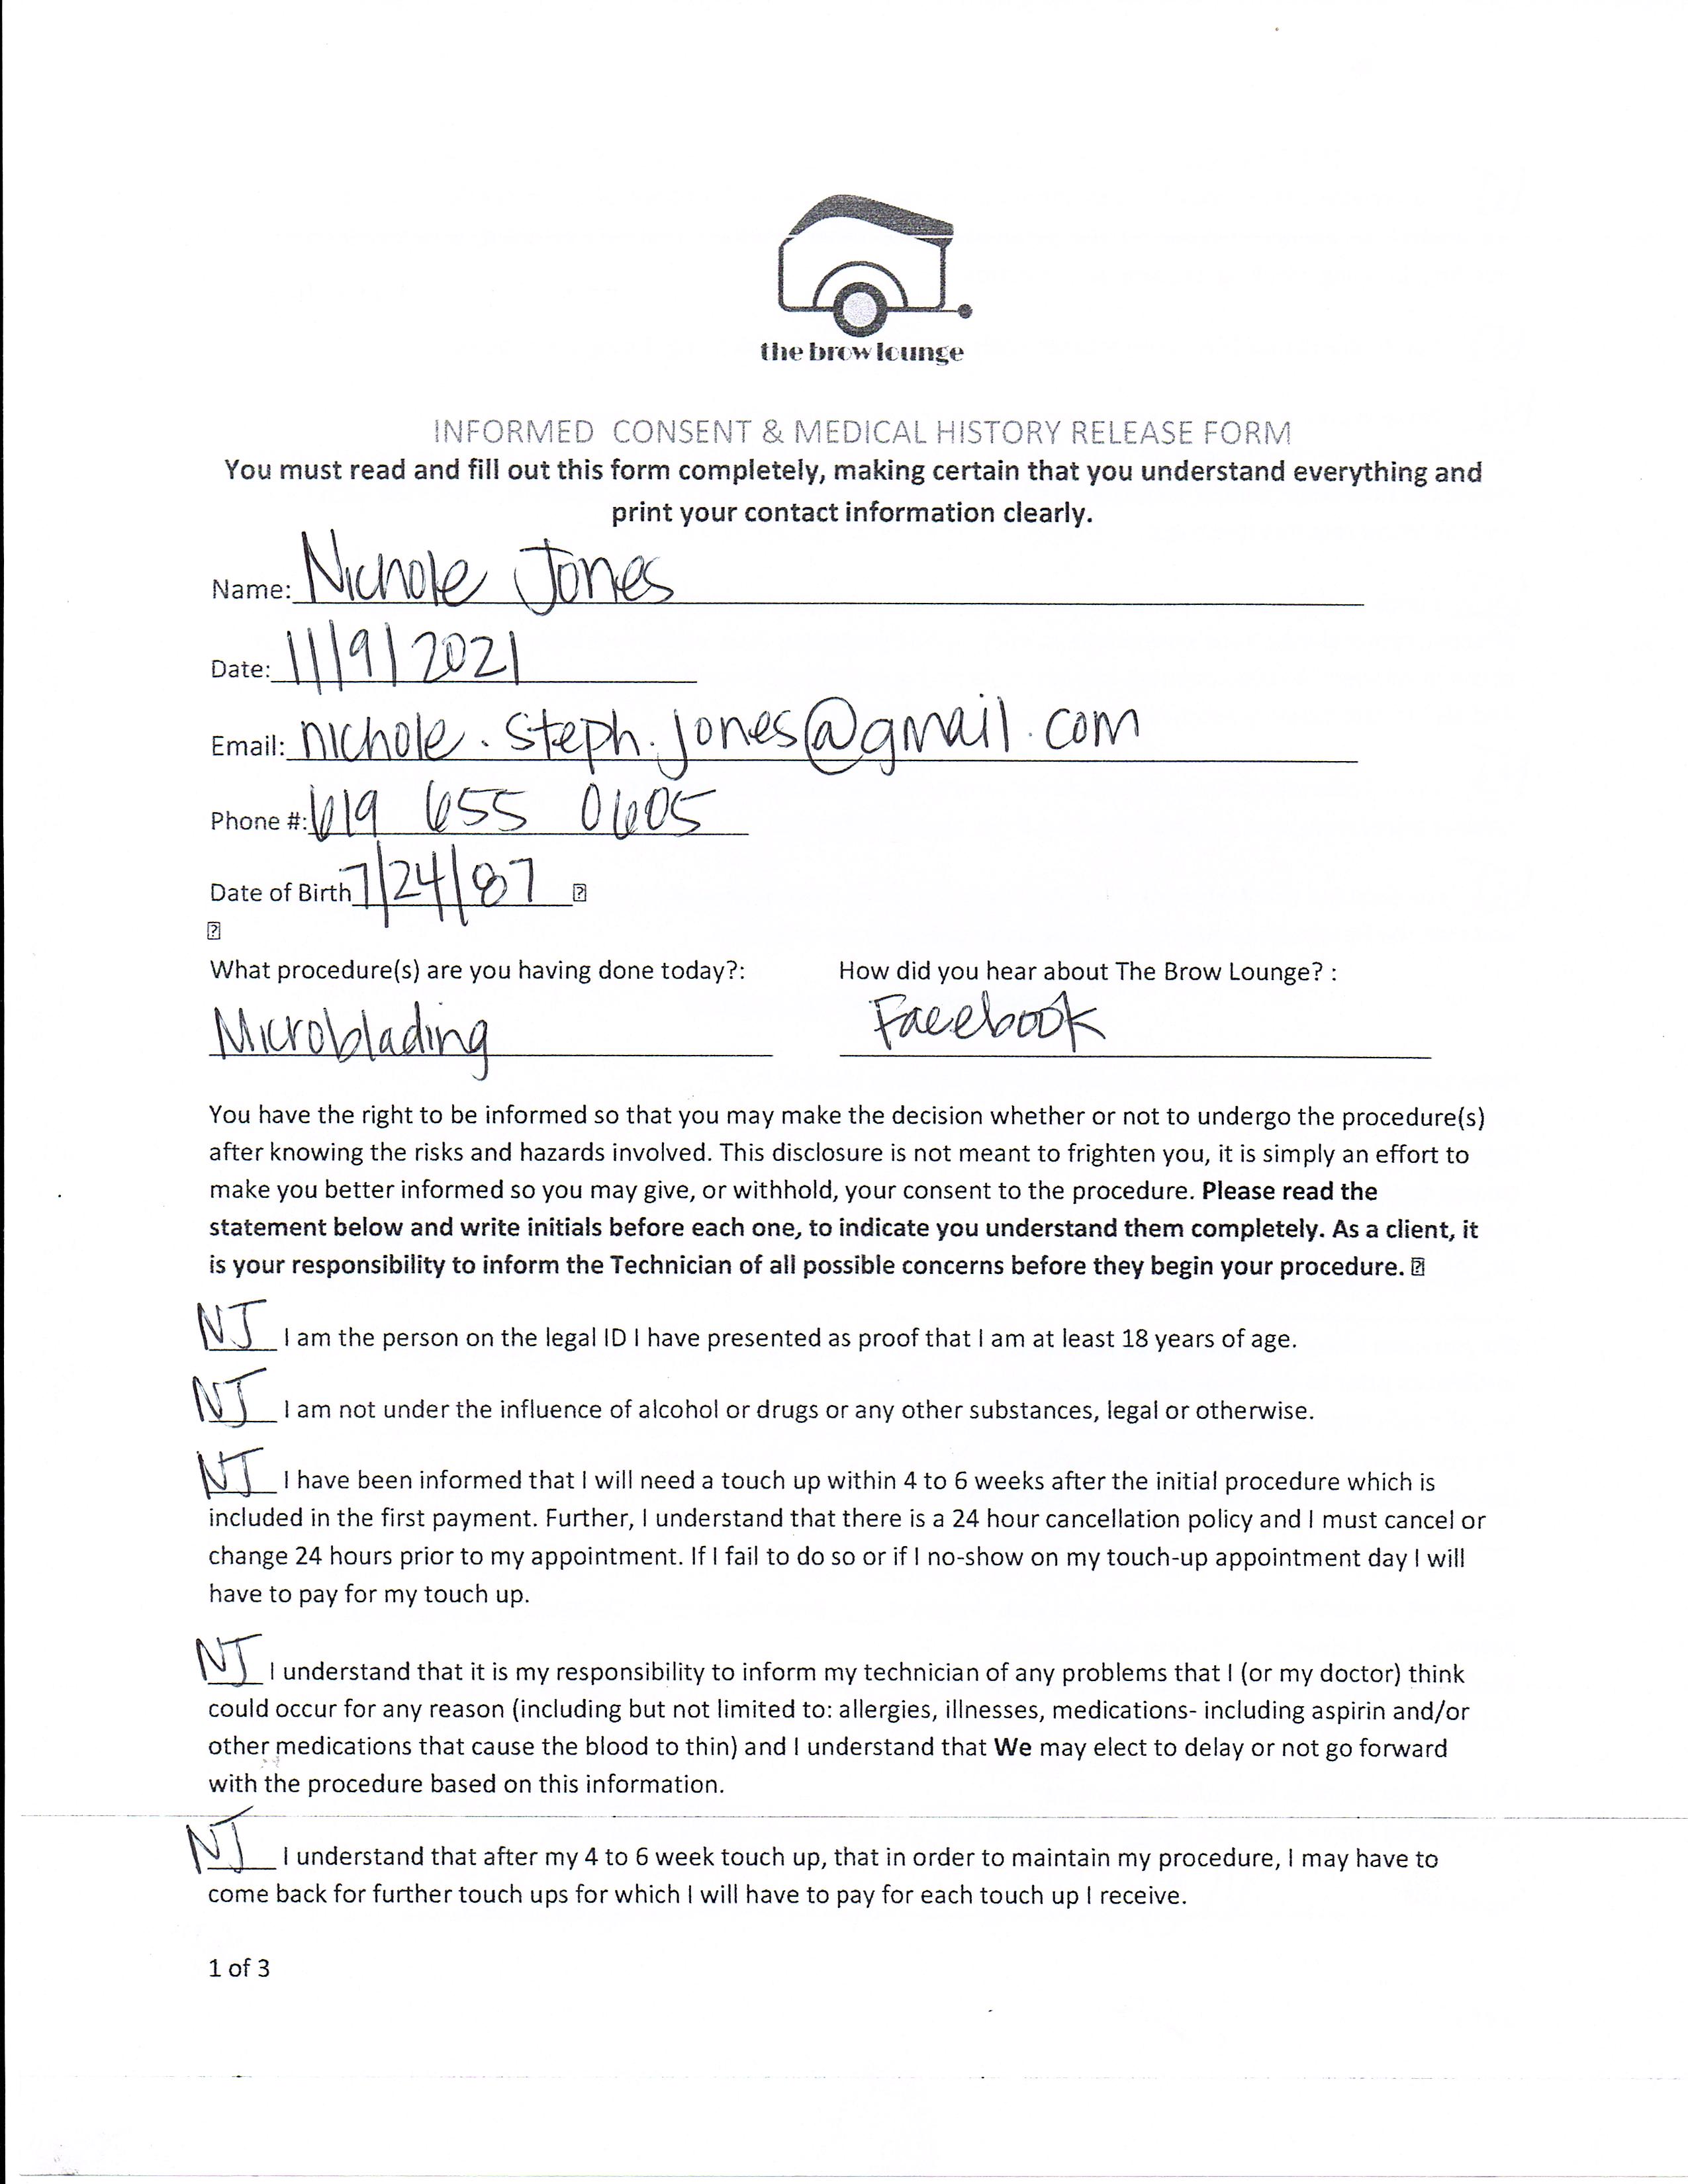 the brow lounge
INFORMED CONSENT & MEDICAL HISTORY RELEASE FORM
You must read and fill out this form completely, making certain that you understand everything and
print your contact information clearly.
Name: Nichole Jones
Date: 11/9/2021
Email: nichole.steph.jones@gmail.com
Phone #: 619 655 0605
Date of Birth 7/24/87
What procedure(s) are you having done today?: How did you hear about The Brow Lounge? :
Microblading Facebook
You have the right to be informed so that you may make the decision whether or not to undergo the procedure(s)
after knowing the risks and hazards involved. This disclosure is not meant to frighten you, it is simply an effort to
make you better informed so you may give, or withhold, your consent to the procedure. Please read the
statement below and write initials before each one, to indicate you understand them completely. As a client, it
is your responsibility to inform the Technician of all possible concerns before they begin your procedure.
NJ I am the person on the legal ID I have presented as proof that I am at least 18 years of age.
NJ I am not under the influence of alcohol or drugs or any other substances, legal or otherwise.
NJ I have been informed that I will need a touch up within 4 to 6 weeks after the initial procedure which is
included in the first payment. Further, I understand that there is a 24 hour cancellation policy and I must cancel or
change 24 hours prior to my appointment. If I fail to do so or if I no-show on my touch-up appointment day I will
have to pay for my touch up.
NJ I understand that it is my responsibility to inform my technician of any problems that I (or my doctor) think
could occur for any reason (including but not limited to: allergies, illnesses, medications- including aspirin and/or
other medications that cause the blood to thin) and I understand that We may elect to delay or not go forward
with the procedure based on this information.
NJ I understand that after my 4 to 6 week touch up, that in order to maintain my procedure, I may have to
come back for further touch ups for which I will have to pay for each touch up I receive.
1 of 3